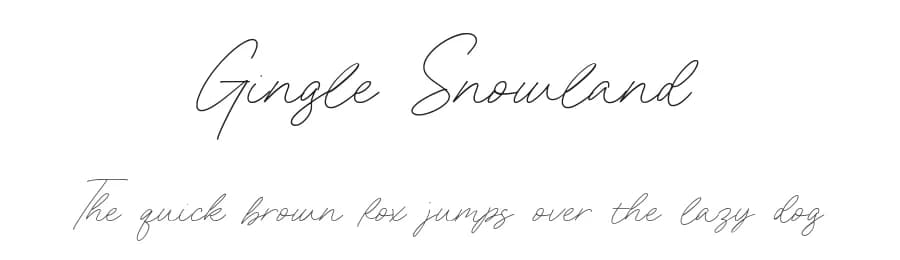 Gingle Snowland
The quick brown fox jumps over the lazy dog